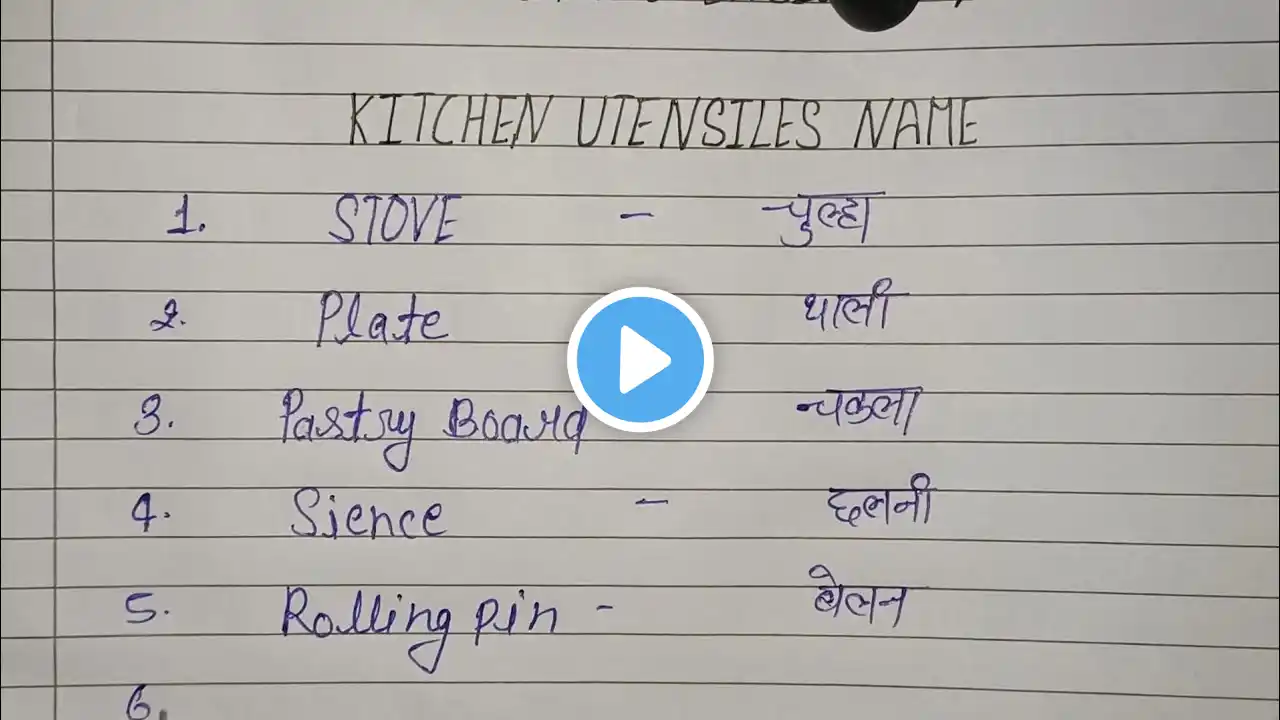 KITCHEN UTENSILES NAME
1. STOVE - चुल्हा
2. Plate थाली
3. Pastry Board चकला
4. Sience - छलनी
5. Rolling pin - बेलन
6.